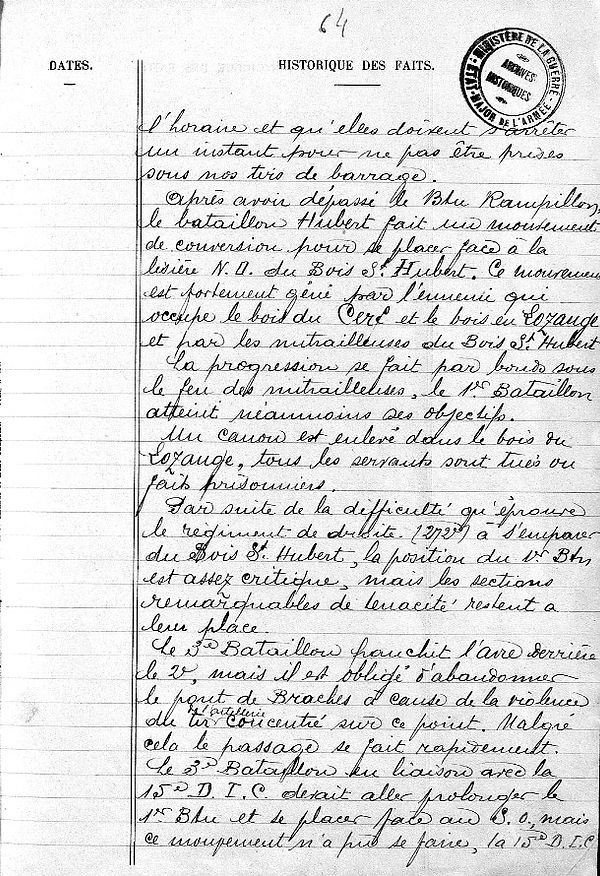 64
MINISTÈRE DE LA GUERRE
ÉTAT-MAJOR DE L'ARMÉE
ARCHIVES
HISTORIQUES
DATES.
HISTORIQUE DES FAITS.
l'horaire et qu'elles doivent s'arrêter
un instant pour ne pas être prises
sous nos tirs de barrage.
Après avoir dépassé le Btn Rampillon,
le bataillon Hubert fait un mouvement
de conversion pour se placer face à la
lisière N.O. du Bois St Hubert. Ce mouvement
est fortement gêné par l'ennemi qui
occupe le bois du Cerf et le bois en Lozange
et par les mitrailleuses du Bois St Hubert
La progression se fait par bonds sous
le feu des mitrailleuses, le 1er Bataillon
atteint néanmoins ses objectifs.
Un canon est enlevé dans le bois du
Lozange, tous les servants sont tués ou
faits prisonniers.
Par suite de la difficulté qu'éprouve
le régiment de droite (272e) à s'emparer
du Bois St Hubert, la position du 1er Btn
est assez critique, mais les sections
remarquables de tenacité restent a
leur place.
Le 3e Bataillon franchit l'avre derrière
le 2e, mais il est obligé d'abandonner
le pont de Braches à cause de la violence
du tir d'artillerie concentré sur ce point. Malgré
cela le passage se fait rapidement.
Le 3e Bataillon en liaison avec la
15e D.I.C. devait aller prolonger le
1er Btn et se placer face au S.O. mais
ce mouvement n'a pu se faire, la 15e D.I.C